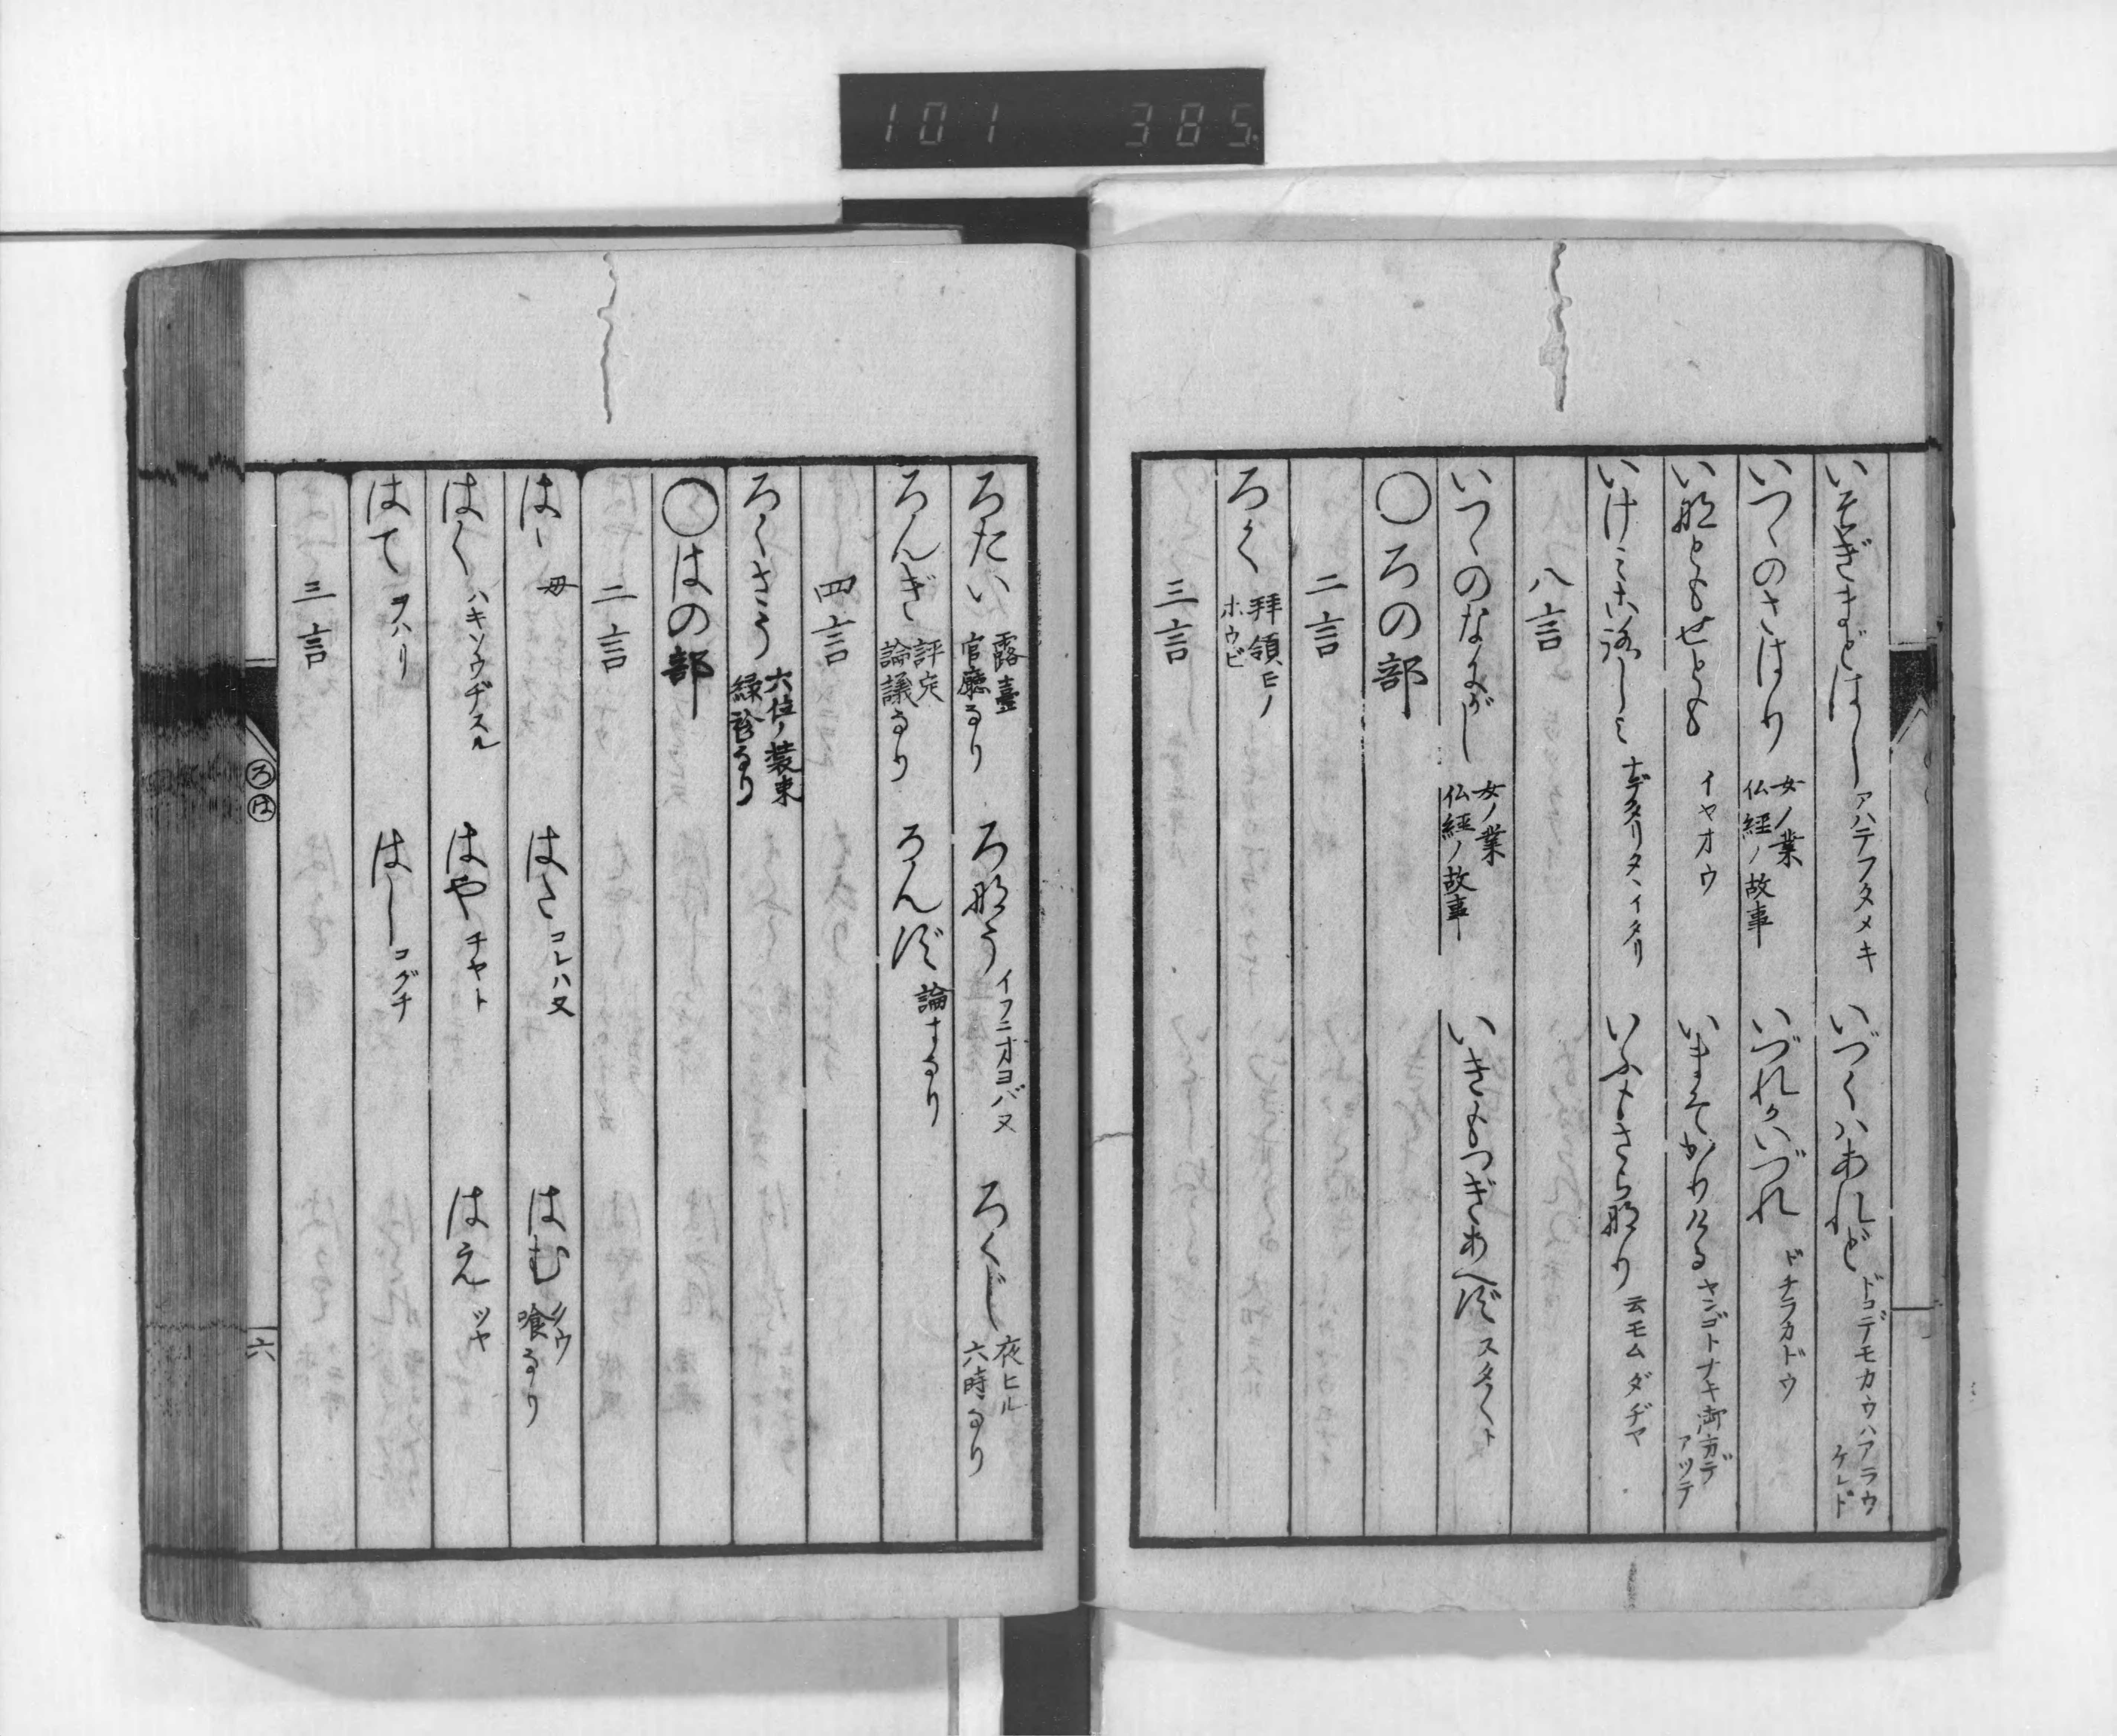 101 385
いそぎまどはし アハテフタメキ
いづくハあれど ドコデモカウハアラウケレド
いつゝのさはり 女ノ業 仏経ノ故事
いづれかいづれ ドチラカドウ
い那ともせとも イヤオウ
いまそかりける ヤンゴトナキ御方デアツテ
いふもさら那り 云モムダヂヤ
八言
いつゝのなよがし 女ノ業 仏経ノ故事
いきもつぎあへず スタ〳〵ト
〇ろの部
二言
ろく 拝領ヒノ ホウビ
三言
ろたい 露臺 官廳なり
ろ那う イフニオヨバヌ
ろくじ 夜ヒル 六時なり
ろんぎ 評定 論議なり
ろんず 論するなり
四言
ろくさう 六位ノ装束 緑衫なり
〇はの部
二言
はゝ 毋
はた コレハ又
はむ クウ 喰なり
はく ハキソウヂスル
はや チヤト
はえ ツヤ
はて ヲハリ
はし コグチ
三言
ろ は
六